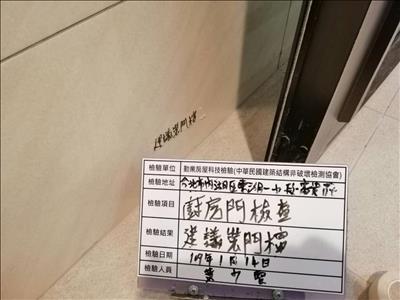 建議裝門檔
檢驗單位 勤業房屋科技檢驗(中華民國建築結構非破壞檢測協會)
檢驗地址
檢驗項目 廚房門檢查
檢驗結果 建議裝門檔
檢驗日期 109年1月14日
檢驗人員 黃